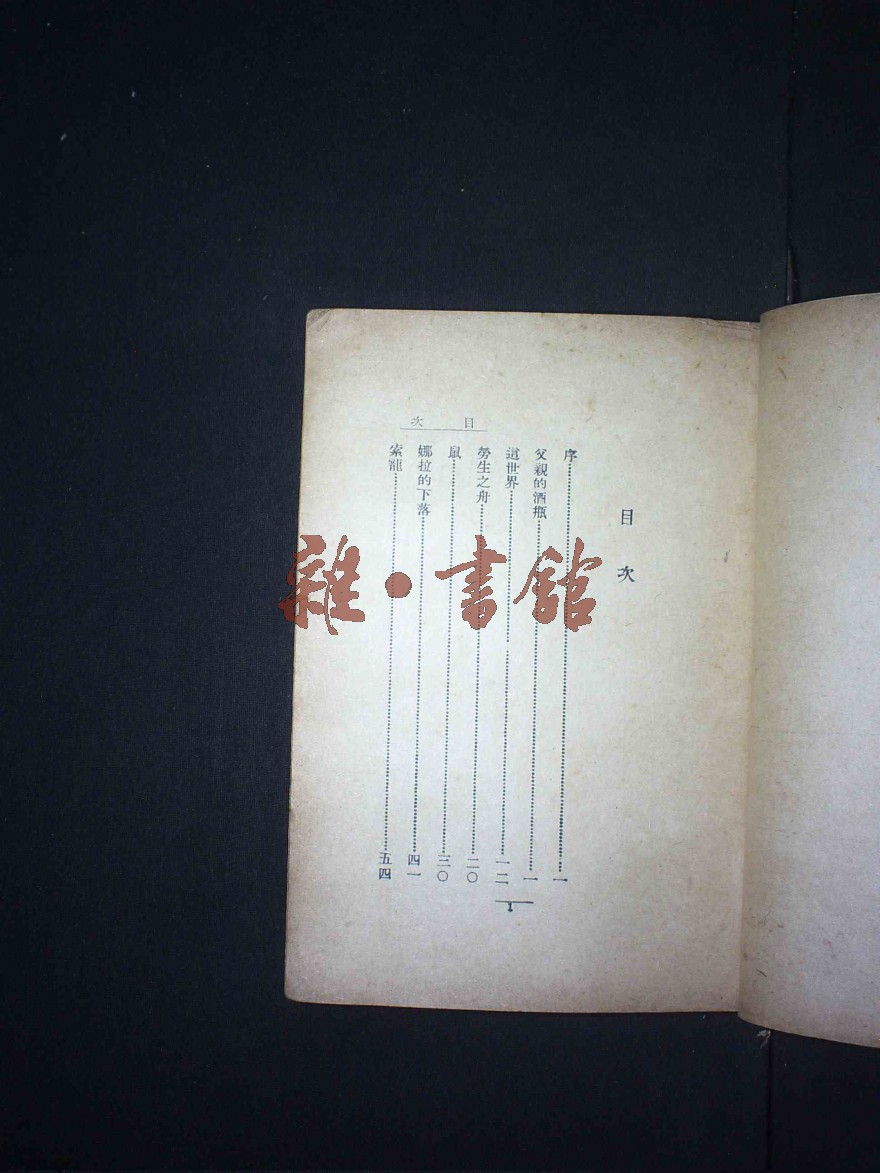 目次
目次
序……一
父親的酒瓶……一
這世界……一二
勞生之舟……二〇
鼠……三〇
娜拉的下落……四一
索寵……五四
1
雜·書館